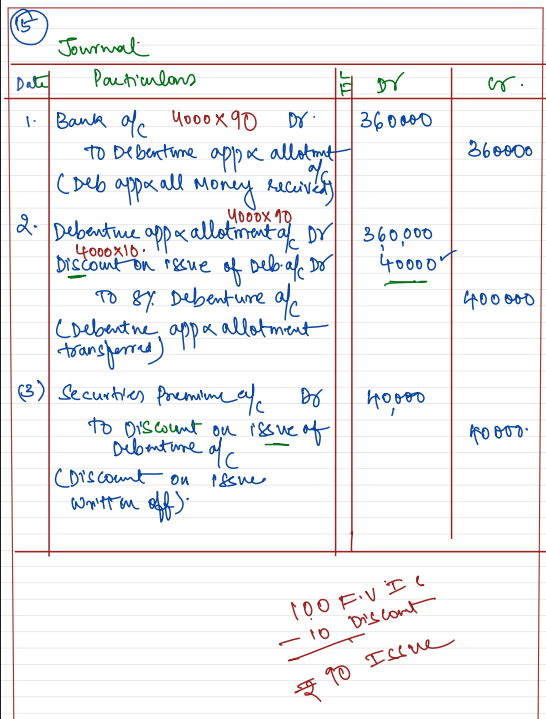 15
Journal
Date Particulars L.F Dr Cr.
1. Bank a/c 4000 x 90 Dr. 360000
To Debenture app & allotmt a/c 360000
(Deb app & all Money received)
4000 x 90
2. Debenture app & allotment a/c Dr 360,000
4000 x 10.
Discount on issue of Deb. a/c Dr 40000 ✓
To 8% Debenture a/c 400000
(Debentne app & allotment
transferred)
(3) Securities Premium a/c Dr 40,000
To Discount on issue of 40000.
Debenture a/c
(Discount on issue
written off).
100 F.V I C
- 10 Discount
₹ 90 Issue